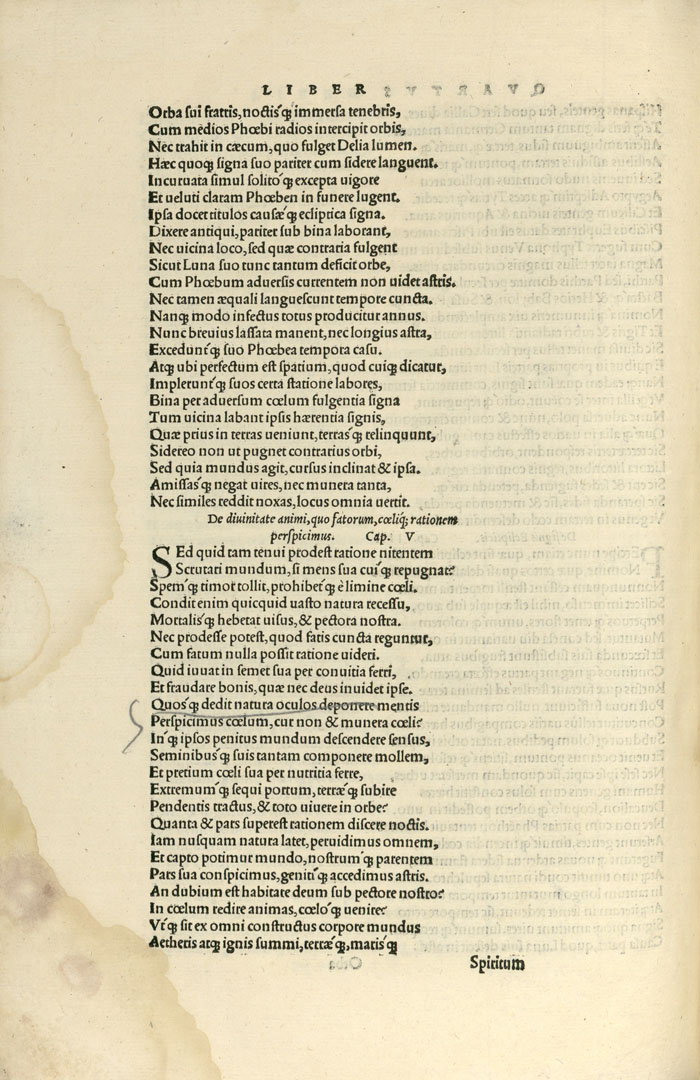 LIBER
Orba sui fratris, noctisq́; immersa tenebris,
Cum medios Phœbi radios intercipit orbis,
Nec trahit in cæcum, quo fulget Delia lumen.
Hæc quoq; signa suo pariter cum sidere languent.
Incuruata simul solitoq́; excepta uigore
Et ueluti claram Phœben in funere lugent.
Ipsa docet titulos causæq́; ecliptica signa.
Dixere antiqui, pariter sub bina laborant,
Nec uicina loco, sed quæ contraria fulgent
Sicut Luna suo tunc tantum deficit orbe,
Cum Phœbum aduersis currentem non uidet astris.
Nec tamen æquali languescunt tempore cuncta.
Nanq; modo infectus totus producitur annus.
Nunc breuius lassata manent, nec longius astra,
Exceduntq́; suo Phœbea tempora casu.
Atq; ubi perfectum est spatium, quod cuiq; dicatur,
Impleruntq́; suos certa statione labores,
Bina per aduersum cœlum fulgentia signa
Tum uicina labant ipsis hærentia signis,
Quæ prius in terras ueniunt, terrasq́; relinquunt,
Sidereo non ut pugnet contrarius orbi,
Sed quia mundus agit, cursus inclinat & ipsa.
Amissasq́; negat uires, nec munera tanta,
Nec similes reddit noxas, locus omnia uertit.
De diuinitate animi, quo fatorum, cœliq́; rationem
perspicimus. Cap. V
SEd quid tam tenui prodest ratione nitentem
Scrutari mundum, si mens sua cuiq; repugnat?
Spemq́; timor tollit, prohibetq́; è limine cœli.
Condit enim quicquid uasto natura recessu,
Mortalisq́; hebetat uisus, & pectora nostra.
Nec prodesse potest, quod fatis cuncta reguntur,
Cum fatum nulla possit ratione uideri.
Quid iuuat in semet sua per conuitia ferri,
Et fraudare bonis, quæ nec deus inuidet ipse.
Quosq́; dedit natura oculos deponere mentis
Perspicimus cœlum, cur non & munera cœli?
Inq́; ipsos penitus mundum descendere sensus,
Seminibusq́; suis tantam componere mollem,
Et pretium cœli sua per nutritia ferre,
Extremumq́; sequi portum, terræq́; subire
Pendentis tractus, & toto uiuere in orbe?
Quanta & pars superest rationem discere noctis.
Iam nusquam natura latet, peruidimus omnem,
Et capto potimur mundo, nostrumq́; parentem
Pars sua conspicimus, genitiq́; accedimus astris.
An dubium est habitare deum sub pectore nostro?
In cœlum redire animas, cœloq́; uenire?
Vtq́; sit ex omni constructus corpore mundus
Aetheris atq; ignis summi, terræq́;, marisq́;
Spiritum